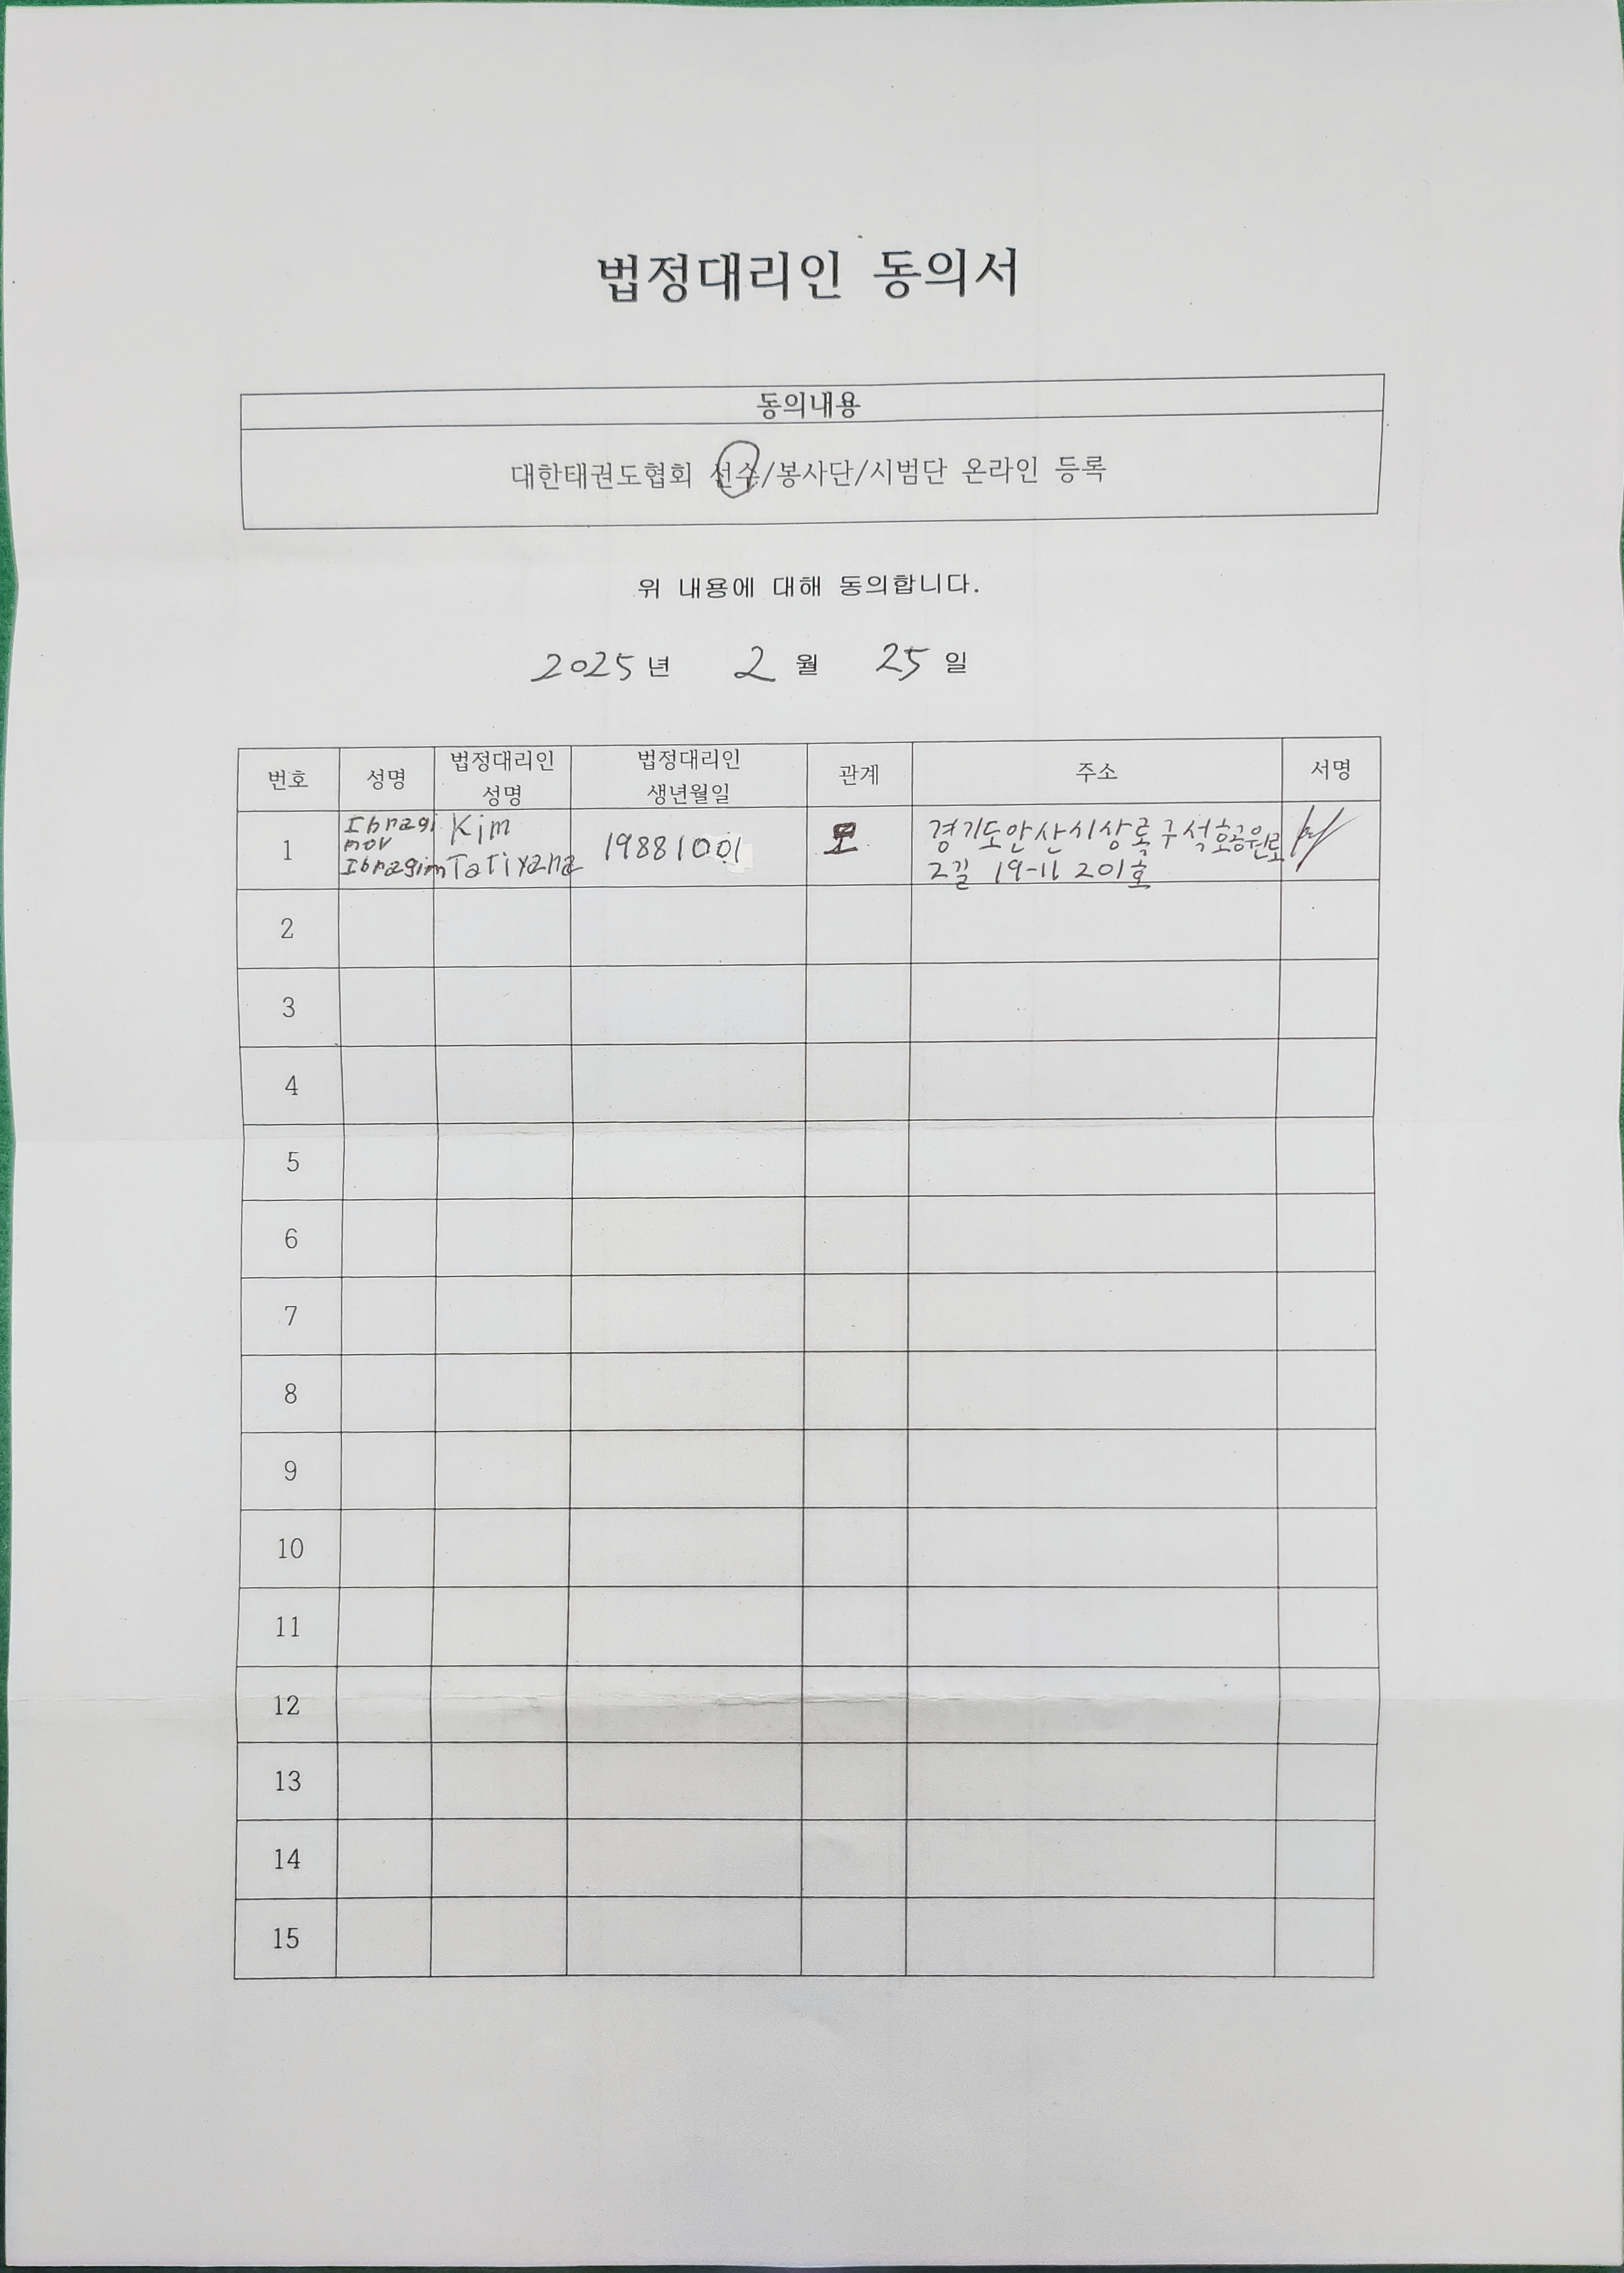 법정대리인 동의서
동의내용
대한태권도협회 선수/봉사단/시범단 온라인 등록
위 내용에 대해 동의합니다.
2025년 2월 25일
번호 성명 법정대리인 성명 법정대리인 생년월일 관계 주소 서명
1 Ibragi mov Ibragim Kim Tatiyana 19881001 모 경기도안산시상록구석호공원로 2길 19-11 201호
2
3
4
5
6
7
8
9
10
11
12
13
14
15